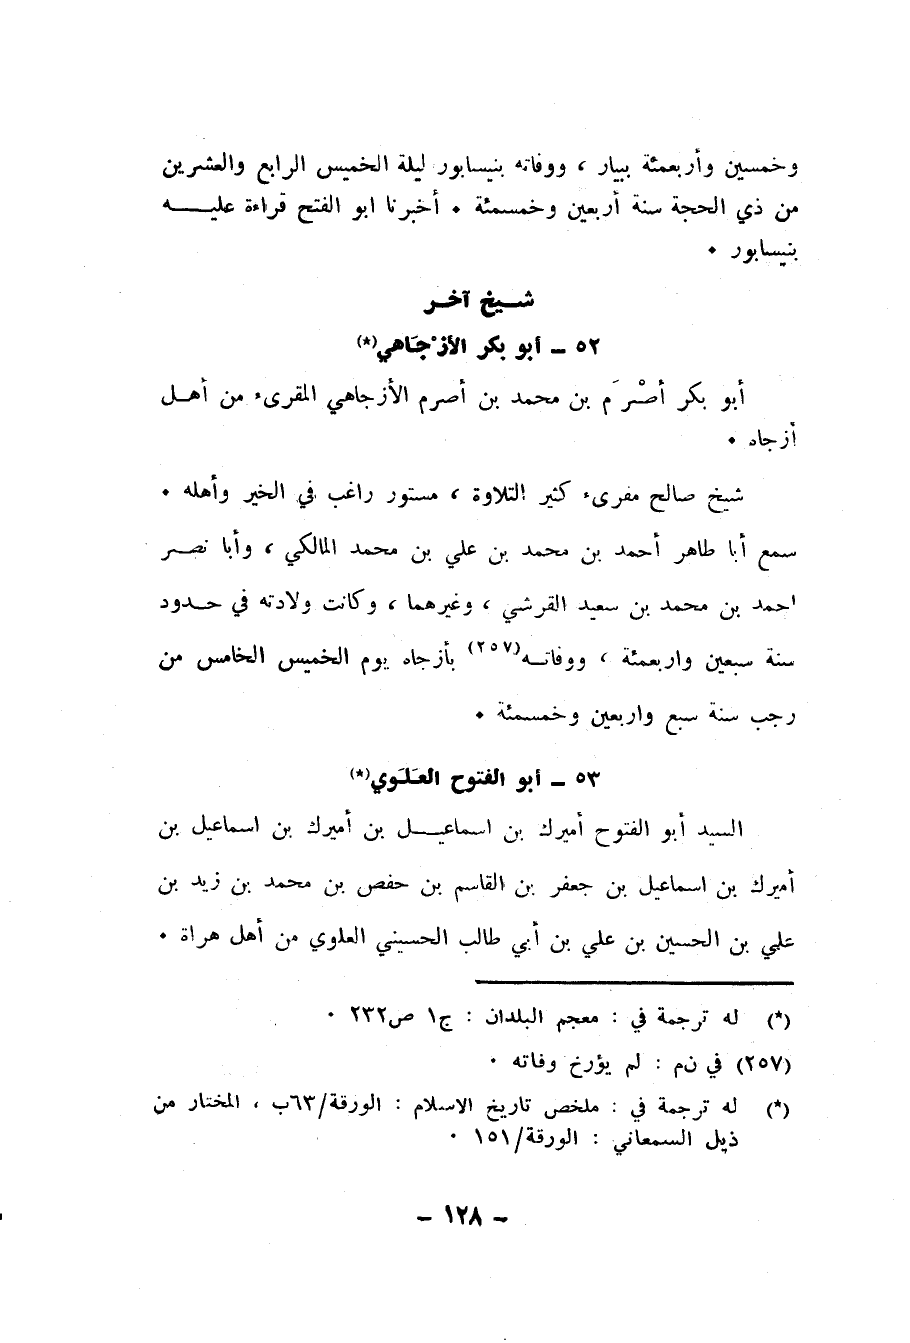 وخمسين وأربعمئة ببيار ، ووفاته بنيسابور ليلة الخميس الرابع والعشرين
من ذي الحجة سنة أربعين وخمسمئة ٠ أخبرنا ابو الفتح قراءة عليـــــه
بنيسابور ٠
شـــيخ آخـــر
٥٢ ــ أبو بكر الأزْجَاهي(*)
أبو بكر أصْرَم بن محمد بن أصرم الأزجاهي المقرىء من أهـــل
أزجاه ٠
شيخ صالح مقرىء كثير التلاوة ، مستور راغب في الخير وأهله ٠
سمع أبا طاهر أحمد بن محمد بن علي بن محمد المالكي ، وأبا نصـــر
احمد بن محمد بن سعيد القرشي ، وغيرهما ، وكانت ولادته في حـــدود
سنة سبعين واربعمئة ، ووفاتـــه(٢٥٧) بأزجاه يوم الخميس الخامس من
رجب سنة سبع واربعين وخمسمئة ٠
٥٣ ــ أبو الفتوح العَلَوي(*)
السيد أبو الفتوح أميرك بن اسماعيـــــل بن أميرك بن اسماعيل بن
أميرك بن اسماعيل بن جعفر بن القاسم بن حفص بن محمد بن زيد بن
علي بن الحسين بن علي بن أبي طالب الحسيني العلوي من أهل هراة ٠
(*) له ترجمة في : معجم البلدان : ج١ ص٢٣٢ ٠
(٢٥٧) في ن‌م : لم يؤرخ وفاته ٠
(*) له ترجمة في : ملخص تاريخ الاسلام : الورقة/٦٣ب ، المختار من
ذيل السمعاني : الورقة/١٥١ ٠
– ١٢٨ –